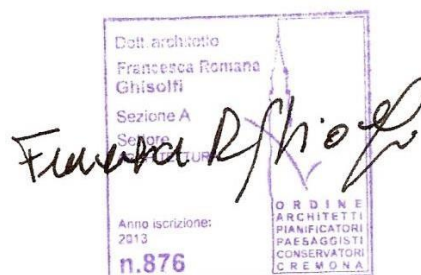 Dott. architetto
Francesca Romana
Ghisolfi
Sezione A
Settore
ARCHITETTURA
Francesca R Ghisolfi
Anno iscrizione:
2013
n.876
ORDINE
ARCHITETTI
PIANIFICATORI
PAESAGGISTI
CONSERVATORI
CREMONA